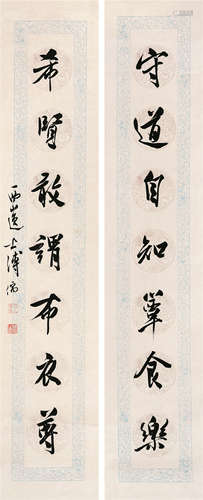 守道自知箪食樂
希賢敢謂布衣尊
西山逸士溥儒